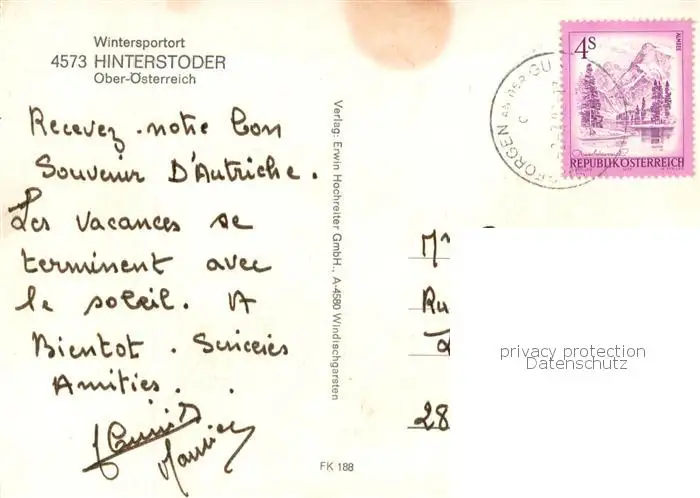 Wintersportort
4573 HINTERSTODER
Ober-Österreich
Recevez notre bon
Souvenir D'Autriche.
Les vacances se
terminent avec
le soleil. A
Bientot. Sincères
Amitiés.
Maurice
Verlag: Erwin Hochreiter GmbH., A-4580 Windischgarsten
FK 188
4S
ALMSEE
REPUBLIK ÖSTERREICH
AN DER GU
Mr
Ru
28
privacy protection
Datenschutz